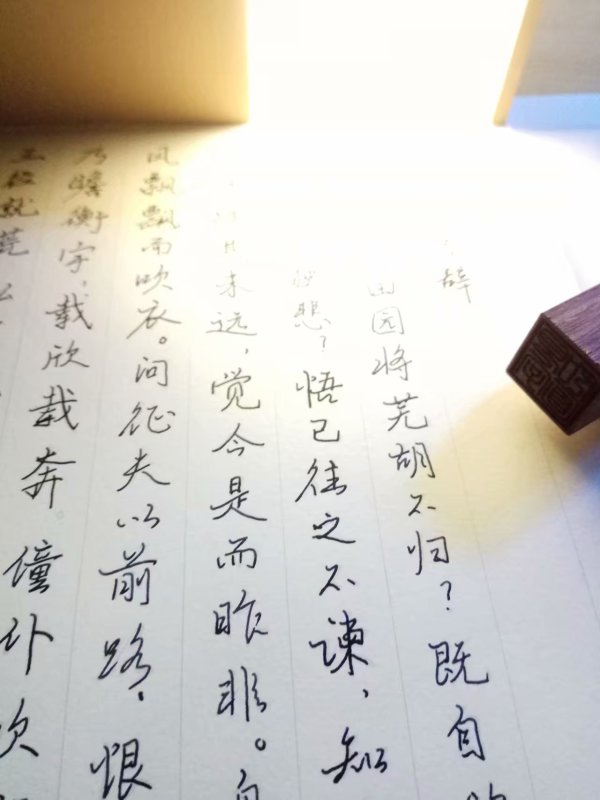 辞
田园将芜胡不归？既自
悲？悟已往之不谏，知
未远，觉今是而昨非。
风飘飘而吹衣。问征夫以前路，恨
乃瞻衡宇，载欣载奔。僮仆欢
三径就荒